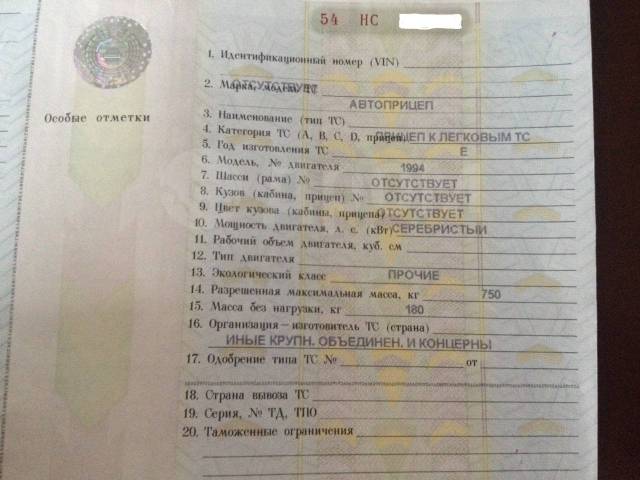 54 НС
1. Идентификационный номер (VIN)
ОТСУТСТВУЕТ
2. Марка, модель ТС
АВТОПРИЦЕП
Особые отметки
3. Наименование (тип ТС)
ПРИЦЕП К ЛЕГКОВЫМ ТС
4. Категория ТС (А, В, С, D, прицеп)
Е
5. Год изготовления ТС
1994
6. Модель, № двигателя
ОТСУТСТВУЕТ
7. Шасси (рама) №
ОТСУТСТВУЕТ
8. Кузов (кабина, прицеп) №
ОТСУТСТВУЕТ
9. Цвет кузова (кабины, прицепа)
СЕРЕБРИСТЫЙ
10. Мощность двигателя, л. с. (кВт)
11. Рабочий объем двигателя, куб. см
12. Тип двигателя
ПРОЧИЕ
13. Экологический класс
14. Разрешенная максимальная масса, кг 750
15. Масса без нагрузки, кг 180
16. Организация – изготовитель ТС (страна)
ИНЫЕ КРУПН. ОБЪЕДИНЕН. И КОНЦЕРНЫ
17. Одобрение типа ТС № от
18. Страна вывоза ТС
19. Серия, № ТД, ТПО
20. Таможенные ограничения